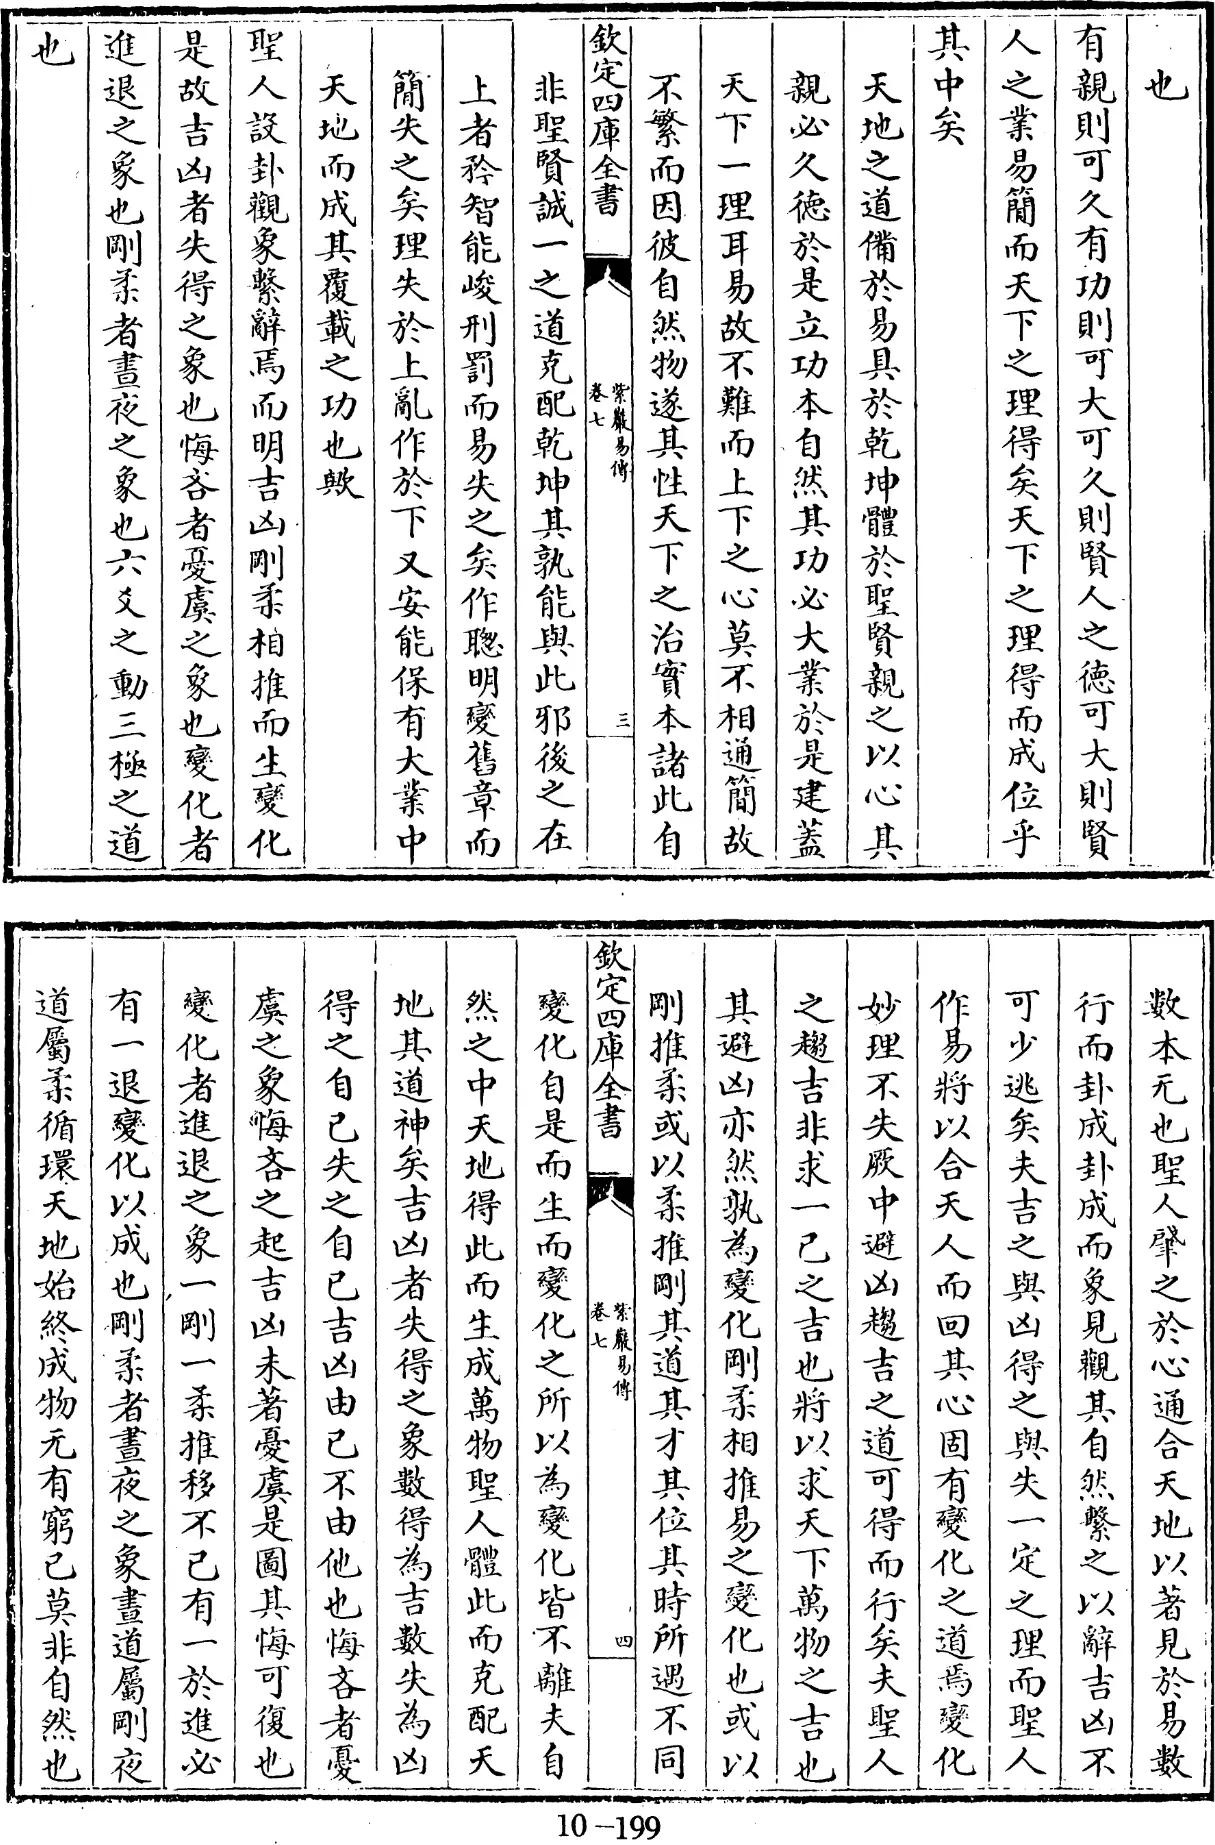 也
有親則可久有功則可大可久則賢人之德可大則賢
人之業易簡而天下之理得矣天下之理得而成位乎
其中矣
天地之道備於易具於乾坤體於聖賢親之以心其
親必久德於是立功本自然其功必大業於是建蓋
天下一理耳易故不難而上下之心莫不相通簡故
不繁而因彼自然物遂其性天下之治實本諸此自
欽定四庫全書
紫巖易傳
卷七
三
非聖賢誠一之道克配乾坤其孰能與此邪後之在
上者矜智能峻刑罰而易失之矣作聰明變舊章而
簡失之矣理失於上亂作於下又安能保有大業中
天地而成其覆載之功也歟
聖人設卦觀象繫辭焉而明吉凶剛柔相推而生變化
是故吉凶者失得之象也悔吝者憂虞之象也變化者
進退之象也剛柔者晝夜之象也六爻之動三極之道
也
數本无也聖人肇之於心通合天地以著見於易數
行而卦成卦成而象見觀其自然繫之以辭吉凶不
可少逃矣夫吉之與凶得之與失一定之理而聖人
作易將以合天人而回其心固有變化之道焉變化
妙理不失厥中避凶趨吉之道可得而行矣夫聖人
之趨吉非求一己之吉也將以求天下萬物之吉也
其避凶亦然孰為變化剛柔相推易之變化也或以
剛推柔或以柔推剛其道其才其位其時所遇不同
欽定四庫全書
紫巖易傳
卷七
四
變化自是而生而變化之所以為變化皆不離夫自
然之中天地得此而生成萬物聖人體此而克配天
地其道神矣吉凶者失得之象數得為吉數失為凶
得之自已失之自已吉凶由已不由他也悔吝者憂
虞之象悔吝之起吉凶未著憂虞是圖其悔可復也
變化者進退之象一剛一柔推移不已有一於進必
有一退變化以成也剛柔者晝夜之象晝道屬剛夜
道屬柔循環天地始終成物无有窮已莫非自然也
10-199